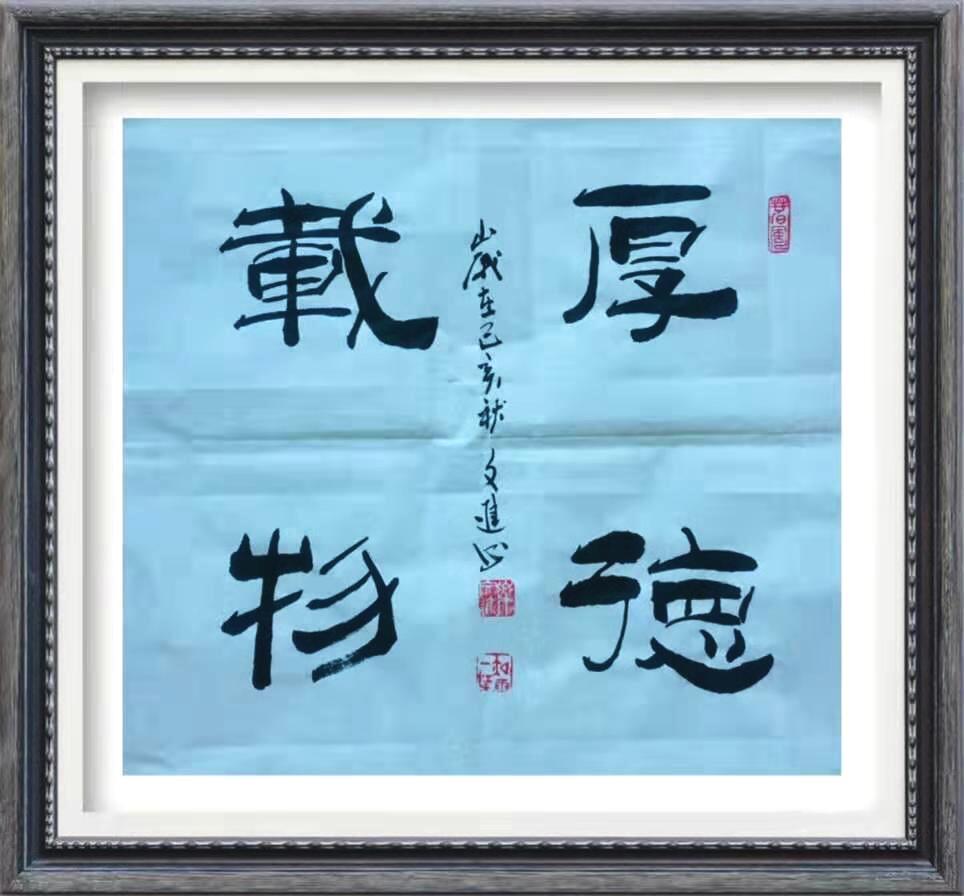 厚德
載物
歲在己亥秋文進書